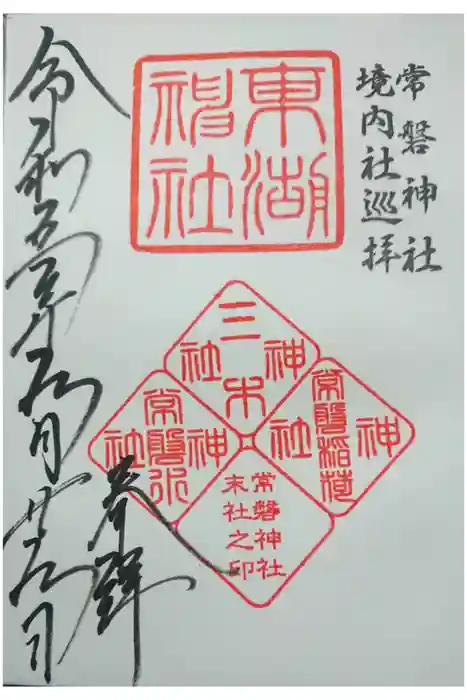 常磐神社
境内社巡拝
東湖
神社
三木
神社
常磐稲荷
神社
常磐水
神社
常磐神社
末社之印
奉拝
令和五年月廿日